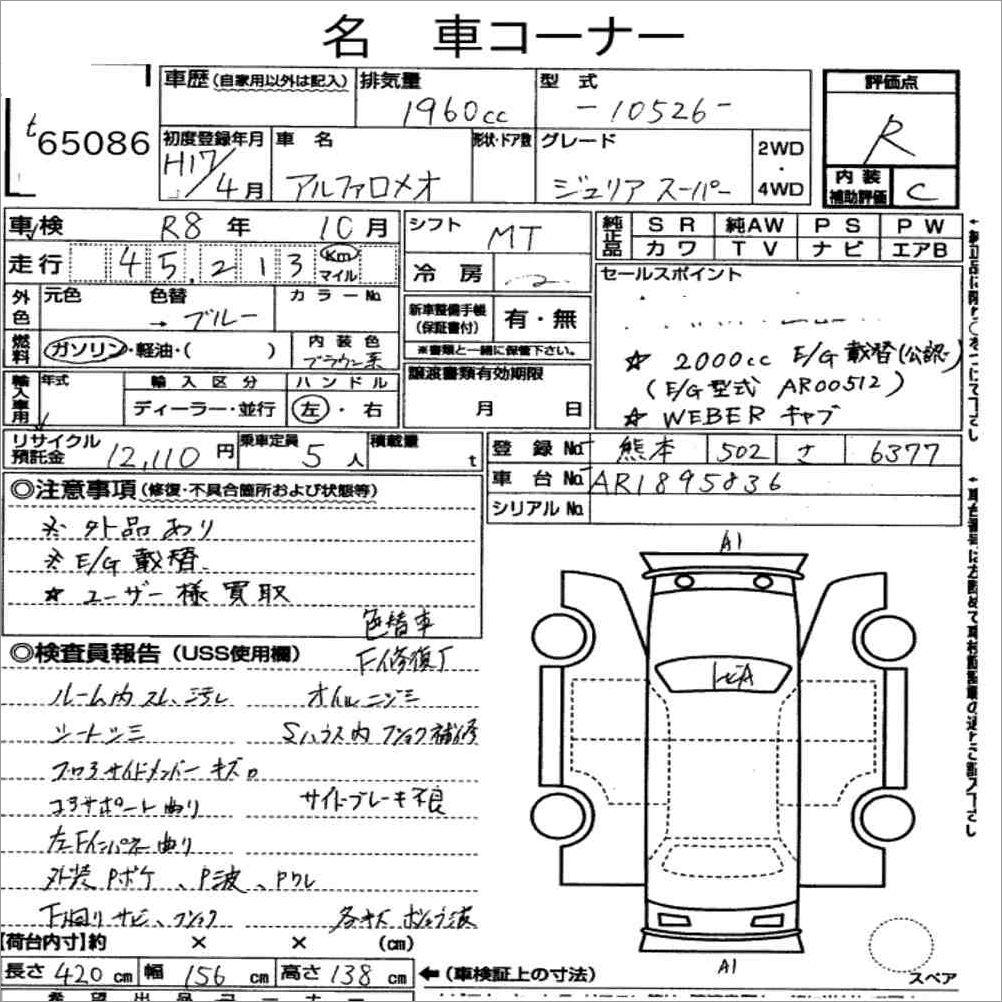 名 車コーナー
t 65086
車歴 (自家用以外は記入)
排気量 1960cc
型式 -10526-
評価点 R
初度登録年月 H17/4月
車名 アルファロメオ
形状・ドア数
グレード ジュリア スーパー
2WD・4WD
内装補助評価 C
車検 R8年 10月
シフト MT
純正品 SR 純AW PS PW
カワ TV ナビ エアB
走行 45,213 Km マイル
冷房
セールスポイント
外色 元色 色替 → ブルー カラーNo
新車整備手帳(保証書付) 有・無
※書類と一緒に保管下さい。
燃料 ガソリン・軽油・( )
内装色 ブラウン系
☆ 2000cc E/G載替(公認)
(E/G型式 AR00512)
☆ WEBER キャブ
輸入車用 年式 輸入区分 ディーラー・並行 ハンドル 左・右
譲渡書類有効期限 月 日
リサイクル預託金 12,110円
乗車定員 5人
積載量 t
登録No 熊本 502 さ 6377
車台No AR1895836
シリアルNo
◎注意事項 (修復・不具合箇所および状態等)
※ 外品あり
※ E/G 載替
☆ ユーザー様買取
色替車
◎検査員報告 (USS使用欄)
F修復了
ルーム内 スレ、汚レ オイルニジミ
シートシミ Sハウス内 フショク補修
フロアサイドメンバー キズ
コアサポート曲り サイドブレーキ不良
左Fインパネ曲り
外装 Pボケ、P波、Pワレ
下回り サビ、フショク 各キズ ボショウ波
A1
トビA
A1
【荷台内寸】約 × × (cm)
長さ 420cm 幅 156cm 高さ 138cm
←(車検証上の寸法)
スペア
希望出品コーナー